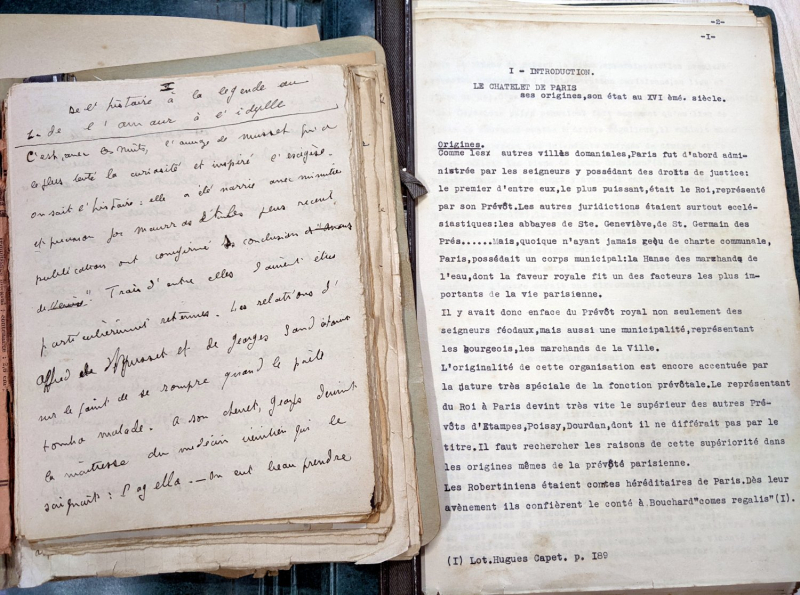 V
De l'histoire à la légende ou
1- de l'amour à l'idylle
C'est, avec les nuits, l'amizé de Musset qui a
le plus tenté la curiosité et inspiré l'exégèse.
on sait l'histoire : elle a été narrée avec minutie
et précision par Maurras études plus récent
publications ont confirmé les conclusions d'"Amants
de Venise". Trois d'entre elles doivent être
particulièrement retenues. Les relations d'
Alfred de Musset et de Georges Sand étaient
sur le point de se rompre quand le poète
tomba malade. A son chevet, Georges devint
la maîtresse du médecin vénitien qui le
soignait : Pagello. — On eut beau prendre
-2-
-I-
I - INTRODUCTION.
LE CHATELET DE PARIS
ses origines,son état au XVI ème. siècle.
Origines.
Comme les autres villes domaniales,Paris fut d'abord admi-
nistrée par les seigneurs y possédant des droits de justice:
le premier d'entre eux,le plus puissant,était le Roi,représenté
par son Prévôt.Les autres juridictions étaient surtout ecclé-
siastiques:les abbayes de Ste. Geneviève,de St. Germain des
Prés......Mais,quoique n'ayant jamais geçu de charte communale,
Paris,possédait un corps municipal:la Hanse des marchands de
l'eau,dont la faveur royale fit un des facteurs les plus im-
portants de la vie parisienne.
Il y avait donc enface du Prévôt royal non seulement des
seigneurs féodaux,mais aussi une municipalité,représentant
les bourgeois,les marchands de la Ville.
L'originalité de cette organisation est encore accentuée par
la nature très spéciale de la fonction prévôtale.Le représentant
du Roi à Paris devint très vite le supérieur des autres Pré-
vôts d'Etampes,Poissy,Dourdan,dont il ne différait pas par le
titre.Il faut rechercher les raisons de cette supériorité dans
les origines mêmes de la prévôté parisienne.
Les Robertiniens étaient comtes héréditaires de Paris.Dès leur
avènement ils confièrent le conté à Bouchard"comes regalis"(I).
(I) Lot.Hugues Capet. p. 189